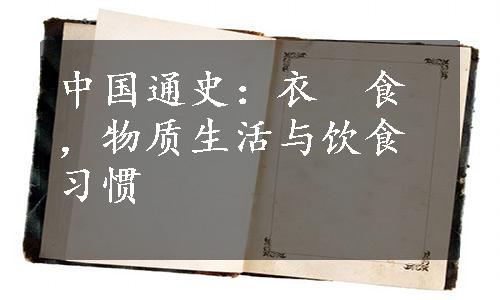 中国通史：衣　食
，物质生活与饮食
习惯